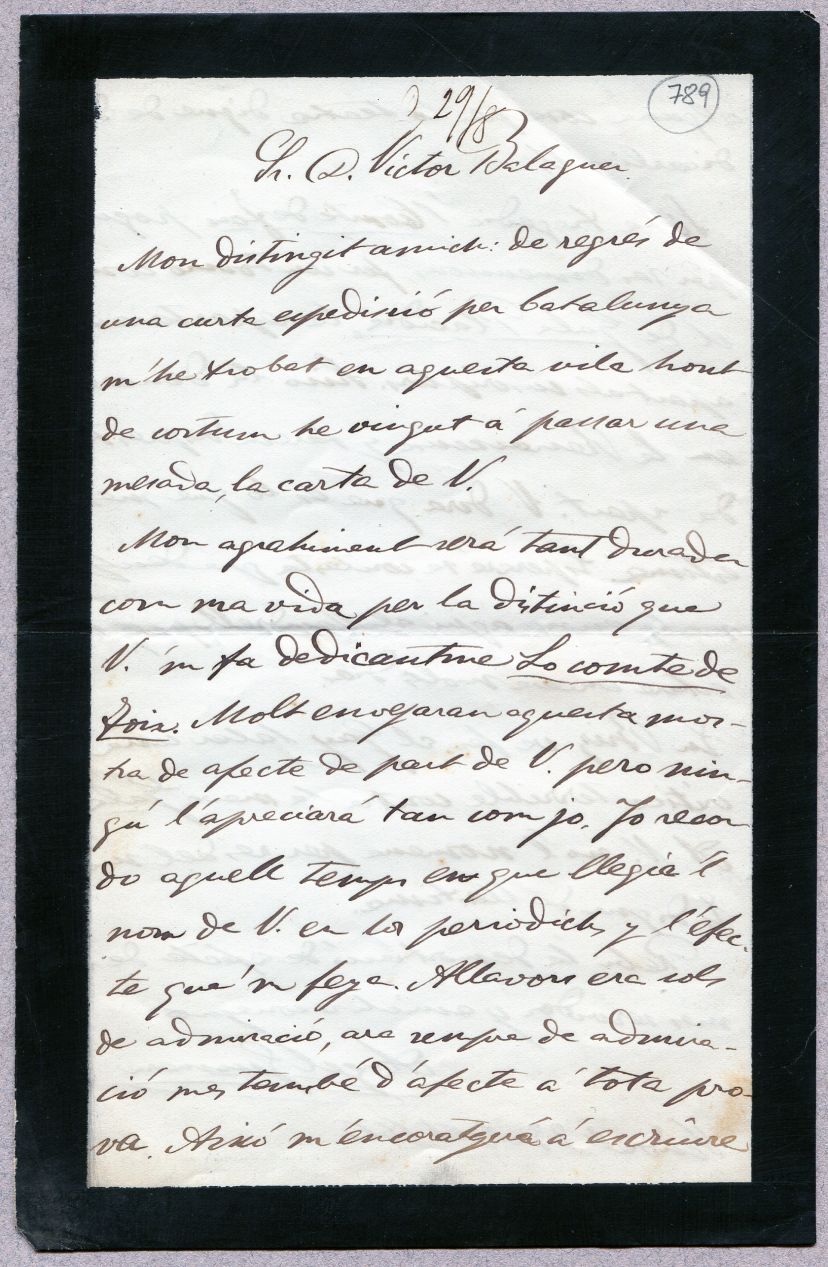 789
29/8
Sr. D. Víctor Balaguer
Mon distingit amich: de regrés de
una curta espedisió per Catalunya
m'he trobat en aquesta vila hont
de costum he vingut á passar una
mesada, la carta de V.
Mon agrahiment será tant durader
com ma vida per la distinció que
V. 'm fa dedicantme Lo comte de
Foix. Molt envejaran aquesta mos-
tra de afecte de part de V. pero nin-
gú l'apreciará tan com jo. Jo recor
do aquell temps en que llegia 'l
nom de V. en los periodichs y l'efec-
te que 'm feya. Allavors era sols
de admiració, ara sempre de admira-
ció mes també d'afecte á tota pro-
va. Aixó m'encoratgerá á escriure